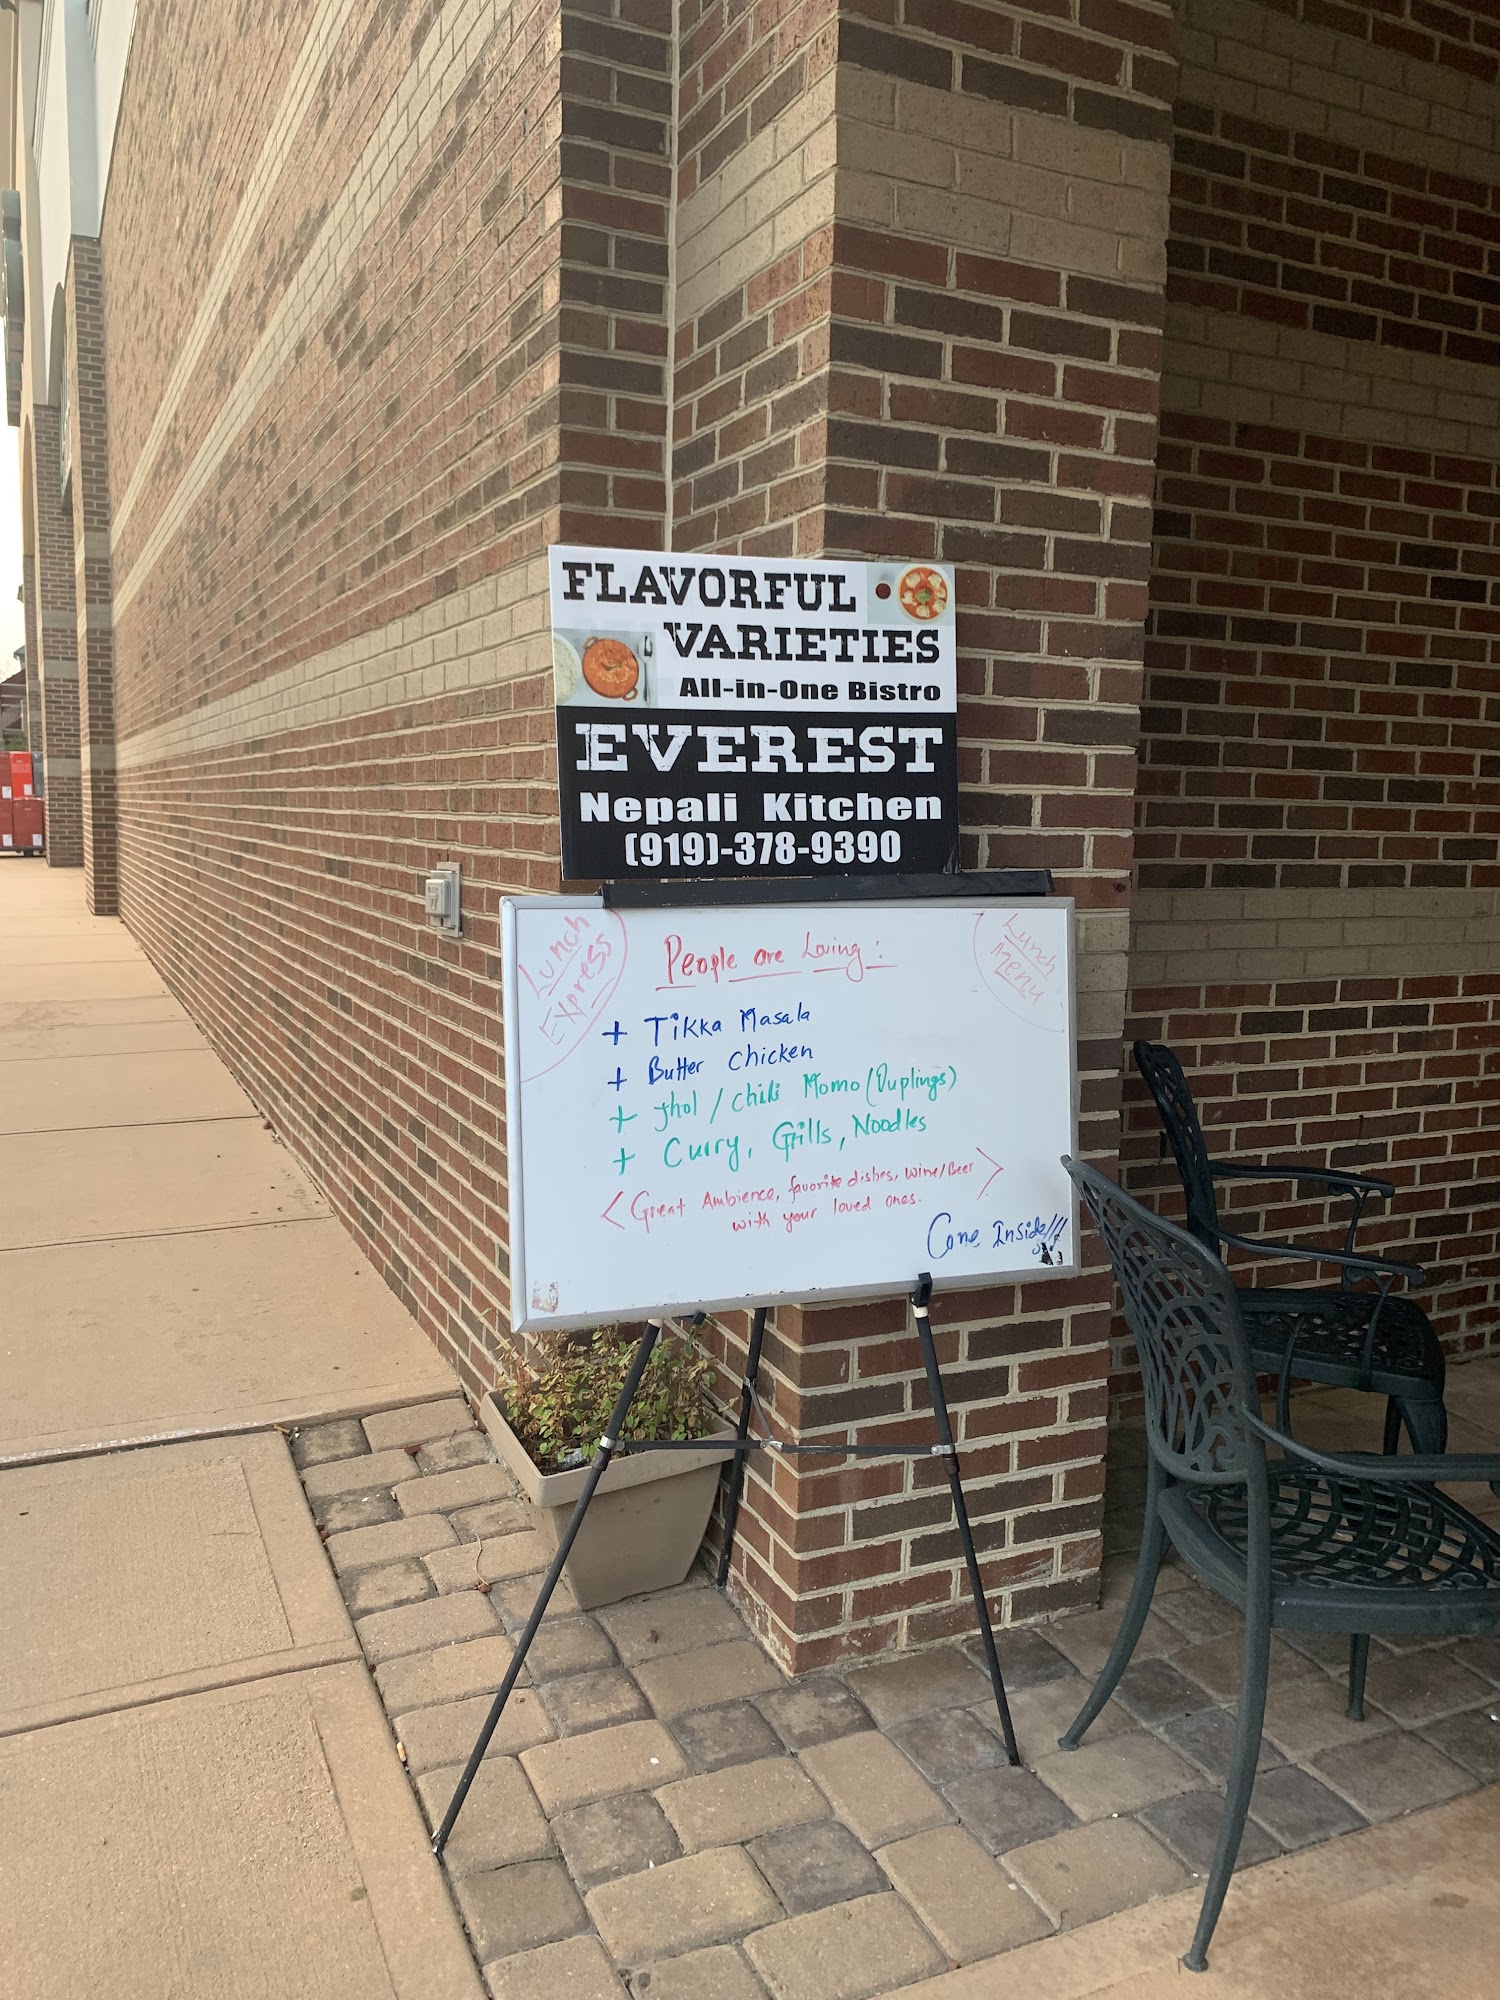 FLAVORFUL
VARIETIES
All-in-One Bistro
EVEREST
Nepali Kitchen
(919)-378-9390
Lunch
Express
Lunch
Menu
People are Loving:
+ Tikka Masala
+ Butter chicken
+ Jhol / chili Momo (Duplings)
+ Curry, Grills, Noodles
< Great Ambience, favorite dishes, wine/Beer >
with your loved ones.
Come Inside!!!